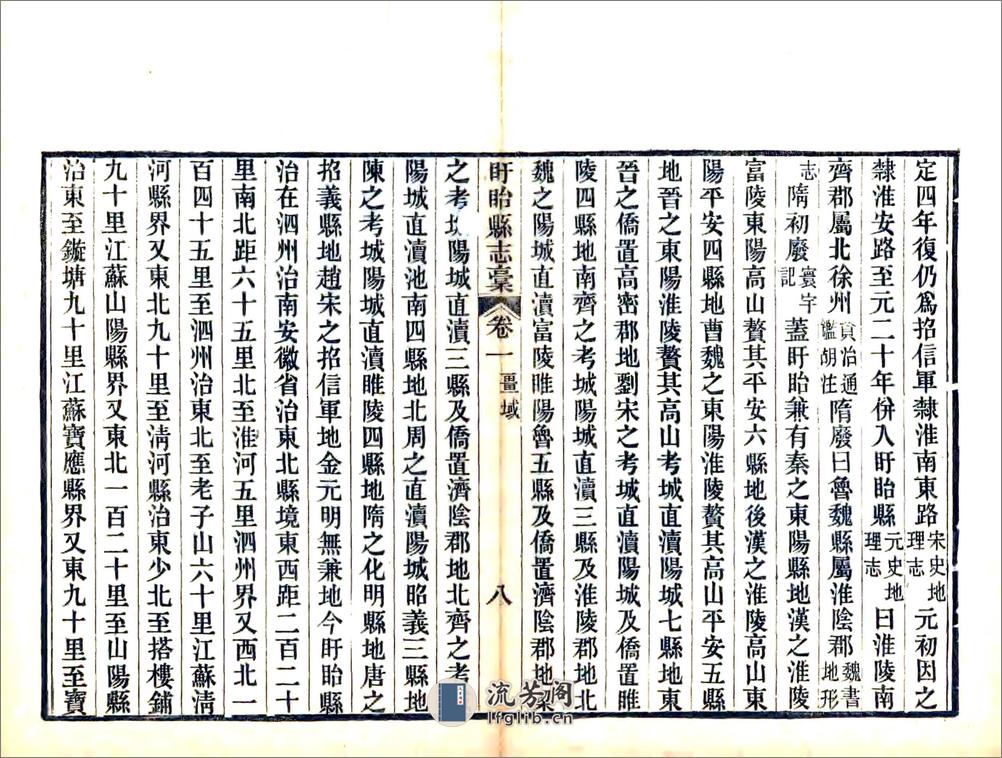 定四年復仍爲招信軍隸淮南東路宋史地理志元初因之
隸淮安路至元二十年併入盱眙縣元史地理志曰淮陵南
齊郡屬北徐州資治通鑑胡注隋廢曰魯魏縣屬淮陰郡魏書地形
志隋初廢寰宇記蓋盱眙兼有秦之東陽縣地漢之淮陵
富陵東陽高山贅其平安六縣地後漢之淮陵高山東
陽平安四縣地曹魏之東陽淮陵贅其高山平安五縣
地晉之東陽淮陵贅其高山考城直瀆陽城七縣地東
晉之僑置高密郡地劉宋之考城直瀆陽城及僑置睢
陵四縣地南齊之考城陽城直瀆三縣及淮陵郡地北
魏之陽城直瀆富陵睢陽魯五縣及僑置濟陰郡地梁
盱眙縣志稾 卷一 疆域 八
之考城陽城直瀆三縣及僑置濟陰郡地北齊之考
陽城直瀆池南四縣地北周之直瀆陽城昭義三縣地
陳之考城陽城直瀆睢陵四縣地隋之化明縣地唐之
招義縣地趙宋之招信軍地金元明無兼地今盱眙縣
治在泗州治南安徽省治東北縣境東西距二百二十
里南北距六十五里北至淮河五里泗州界又西北一
百四十五里至泗州治東北至老子山六十里江蘇淸
河縣界又東北九十里至淸河縣治東少北至搭樓鋪
九十里江蘇山陽縣界又東北一百二十里至山陽縣
治東至鏇塘九十里江蘇寶應縣界又東九十里至寶
流芳閣
lfglib.cn